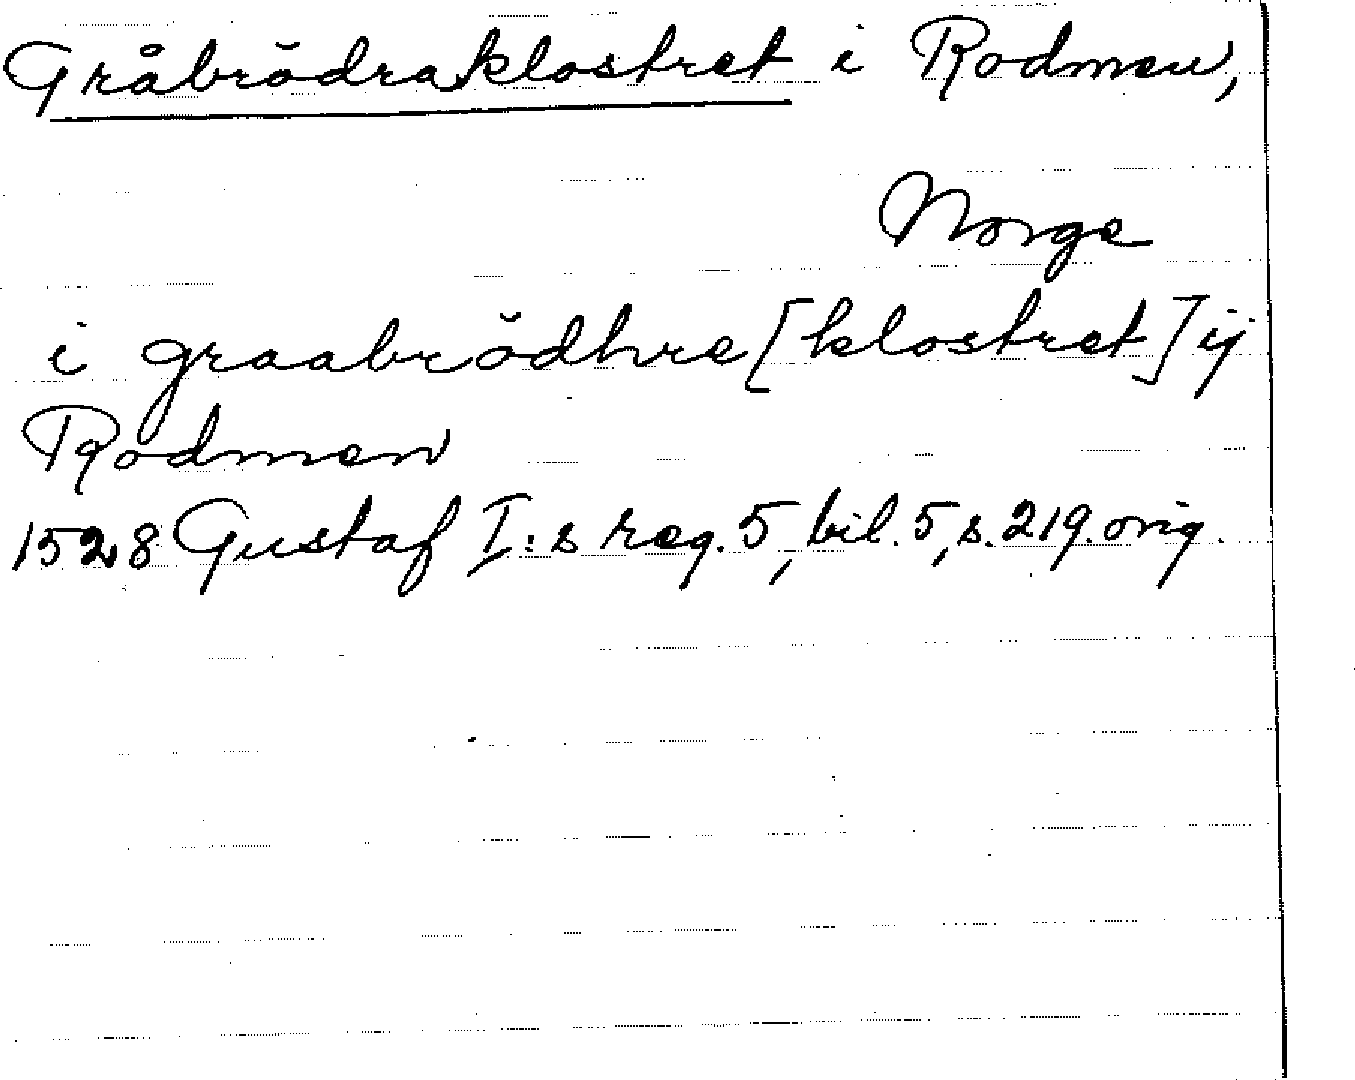 Gråbrödraklostret i Rodmen,
Norge
i graabrödhre [klostret] ij
Rodmen
1528 Gustaf I:s reg. 5, bil. 5, s. 219. orig.